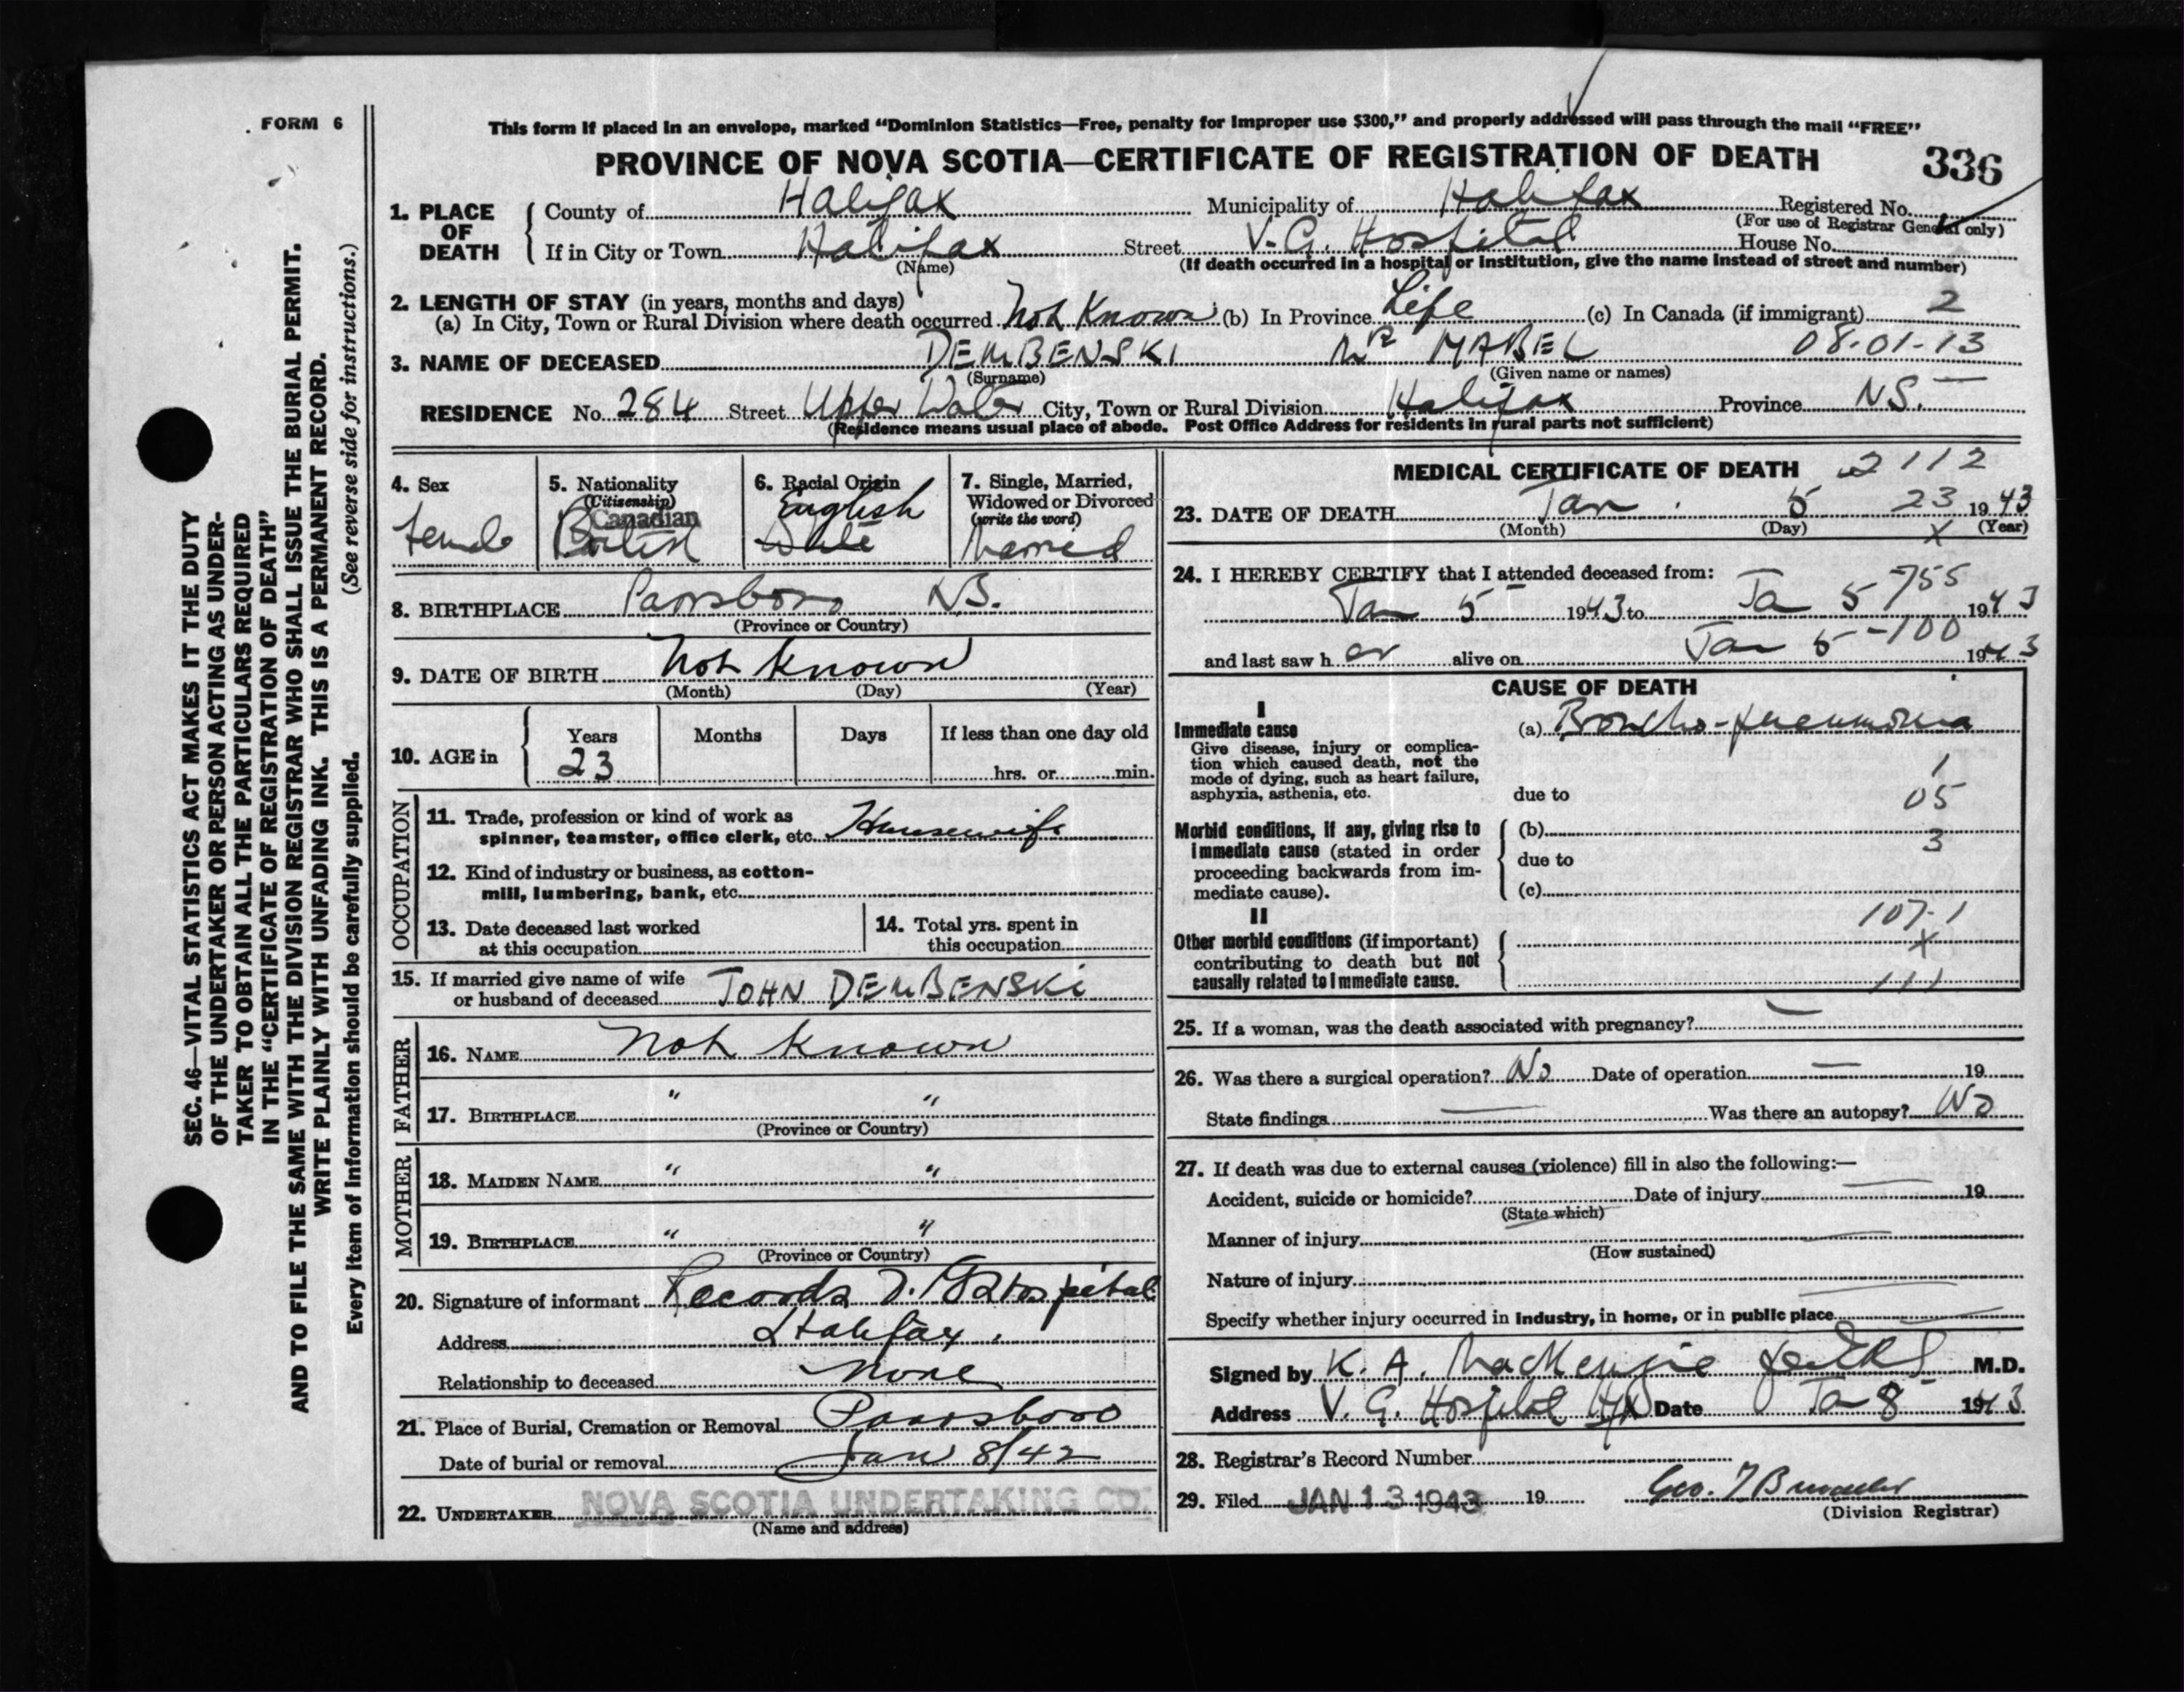 FORM 6
This form if placed in an envelope, marked “Dominion Statistics—Free, penalty for improper use $300,” and properly addressed will pass through the mail “FREE”
PROVINCE OF NOVA SCOTIA—CERTIFICATE OF REGISTRATION OF DEATH 336
1. PLACE OF DEATH
County of Halifax Municipality of Halifax Registered No.
(For use of Registrar General only)
If in City or Town Halifax Street V. G. Hospital House No.
(Name) (If death occurred in a hospital or institution, give the name instead of street and number)
2. LENGTH OF STAY (in years, months and days)
(a) In City, Town or Rural Division where death occurred Not Known (b) In Province Life (c) In Canada (if immigrant) 2
3. NAME OF DECEASED DEMBENSKI MABEL 08-01-13
(Surname) (Given name or names)
RESIDENCE No. 284 Street Upper Water City, Town or Rural Division Halifax Province N.S.
(Residence means usual place of abode. Post Office Address for residents in rural parts not sufficient)
4. Sex
female
5. Nationality
(Citizenship)
Canadian
British
6. Racial Origin
English
White
7. Single, Married,
Widowed or Divorced
(write the word)
Married
8. BIRTHPLACE Parrsboro N.S.
(Province or Country)
9. DATE OF BIRTH Not Known
(Month) (Day) (Year)
10. AGE in
Years Months Days If less than one day old
23 hrs. or min.
OCCUPATION
11. Trade, profession or kind of work as
spinner, teamster, office clerk, etc. Housewife
12. Kind of industry or business, as cotton-
mill, lumbering, bank, etc.
13. Date deceased last worked
at this occupation
14. Total yrs. spent in
this occupation
15. If married give name of wife
or husband of deceased JOHN DEMBENSKI
FATHER
16. NAME Not Known
17. BIRTHPLACE " "
(Province or Country)
MOTHER
18. MAIDEN NAME " "
19. BIRTHPLACE " "
(Province or Country)
20. Signature of informant Records V. G. Hospital
Address Halifax.
Relationship to deceased None
21. Place of Burial, Cremation or Removal Parrsboro
Date of burial or removal Jan 8/42
22. UNDERTAKER NOVA SCOTIA UNDERTAKING CO.
(Name and address)
MEDICAL CERTIFICATE OF DEATH 2112
23. DATE OF DEATH Jan. 5 23 1943
(Month) (Day) X (Year)
24. I HEREBY CERTIFY that I attended deceased from:
Jan 5 1943 to Ja 5 755 1943
and last saw her alive on Jan 5 - 100 1943
CAUSE OF DEATH
I
Immediate cause
Give disease, injury or complica-
tion which caused death, not the
mode of dying, such as heart failure,
asphyxia, asthenia, etc.
(a) Broncho-pneumonia
1
due to 05
Morbid conditions, if any, giving rise to
immediate cause (stated in order
proceeding backwards from im-
mediate cause).
(b)
3
due to
(c)
II
Other morbid conditions (if important)
contributing to death but not
causally related to immediate cause.
107-1
X
111
25. If a woman, was the death associated with pregnancy? —
26. Was there a surgical operation? No Date of operation — 19
State findings — Was there an autopsy? No
27. If death was due to external causes (violence) fill in also the following:—
Accident, suicide or homicide? Date of injury — 19
(State which)
Manner of injury —
(How sustained)
Nature of injury —
Specify whether injury occurred in industry, in home, or in public place —
Signed by K. A. MacKenzie M.D.
Address V. G. Hospital Hfx Date Ja 8 1943
28. Registrar's Record Number
29. Filed JAN 13 1943 19
Geo. T
(Division Registrar)
SEC. 46—VITAL STATISTICS ACT MAKES IT THE DUTY
OF THE UNDERTAKER OR PERSON ACTING AS UNDER-
TAKER TO OBTAIN ALL THE PARTICULARS REQUIRED
IN THE “CERTIFICATE OF REGISTRATION OF DEATH”
AND TO FILE THE SAME WITH THE DIVISION REGISTRAR WHO SHALL ISSUE THE BURIAL PERMIT.
WRITE PLAINLY WITH UNFADING INK. THIS IS A PERMANENT RECORD.
Every item of information should be carefully supplied. (See reverse side for instructions.)